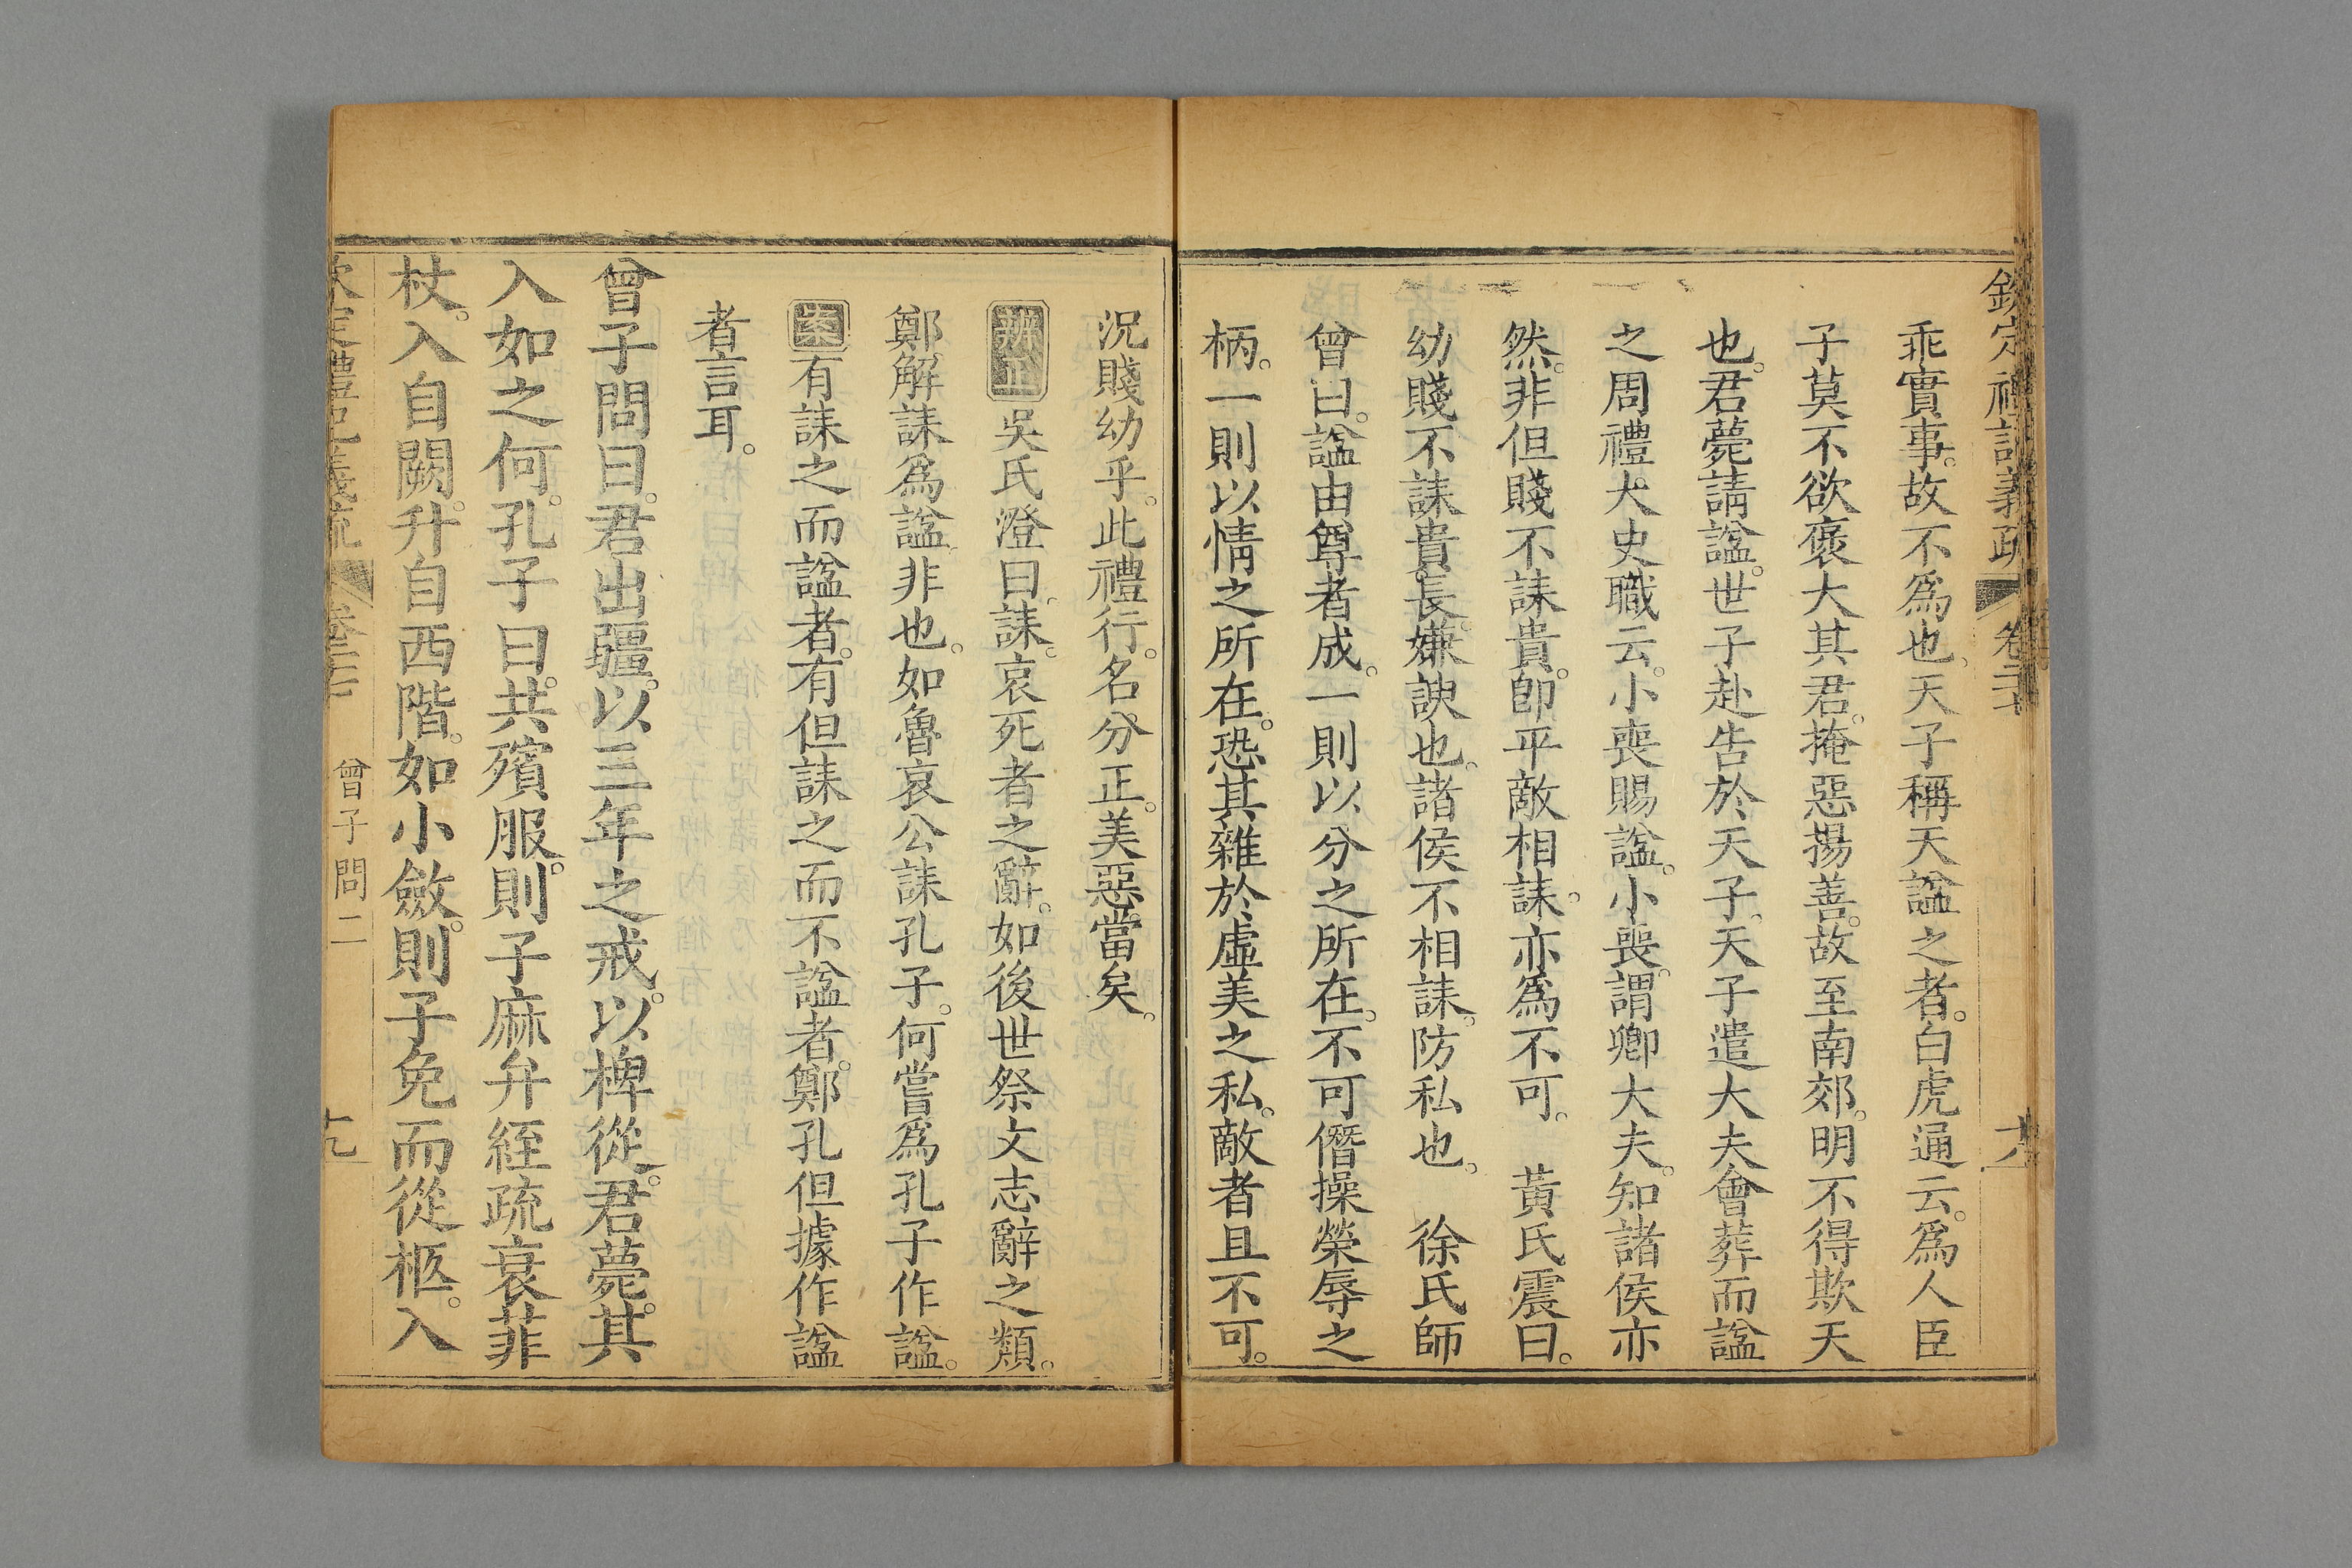 欽定禮記義疏 卷二十七 十八
乖實事。故不爲也、天子稱天諡之者。白虎通云。爲人臣
子莫不欲襃大其君。掩惡揚善。故至南郊。明不得欺天
也。君薨請諡。世子赴告於天子、天子遣大夫會葬而諡
之周禮大史職云。小喪賜諡。小喪。謂卿大夫。知諸侯亦
然。非但賤不誄貴。卽平敵相誄。亦爲不可。 黃氏震曰。
幼賤不誄貴。長。嫌諛也。諸侯不相誄。防私也。 徐氏師
曾曰。諡由尊者成。一則以分之所在。不可僭操榮辱之
柄。一則以情之所在。恐其雜於虛美之私。敵者且不可。
況賤幼乎。此禮行。名分正。美惡當矣。
辨正吳氏澄曰。誄。哀死者之辭。如後世祭文志辭之類。
鄭解誄爲諡。非也。如魯哀公誄孔子。何嘗爲孔子作諡。
案有誄之而諡者。有但誄之而不諡者。鄭孔但據作諡
者言耳。
曾子問曰。君出疆。以三年之戒。以椑從。君薨。其
入如之何。孔子曰。共殯服。則子麻弁絰疏衰菲
杖。入自闕。升自西階。如小斂。則子免而從柩。入
欽定禮記義疏 卷二十七 曾子問二 十九